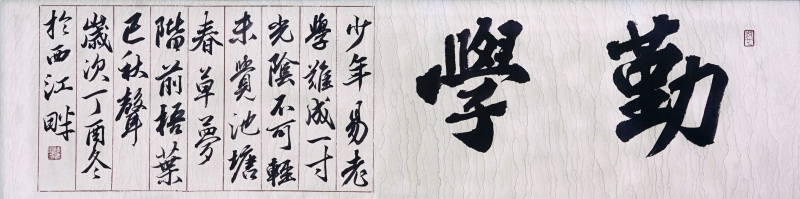 勤學
少年易老
學難成一寸
光陰不可輕
未覺池塘
春草夢
階前梧葉
已秋聲
歲次丁酉冬
於西江畔